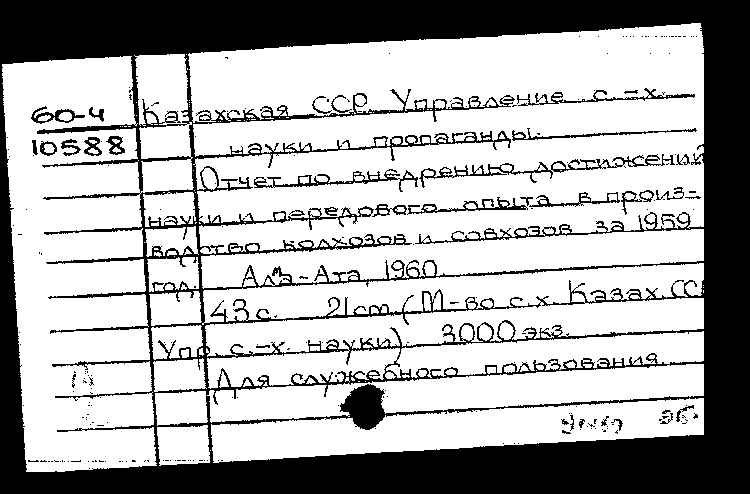 60-4 Казахская ССР. Управление с.-х.
10588 науки и пропаганды.
Отчет по внедрению достижений
науки и передового опыта в произ-
водство колхозов и совхозов за 1959
год. Алма-Ата, 1960.
43 с. 21 cm. (М-во с.х. Казах. ССР
Упр. с.-х. науки). 3000 экз.
Для служебного пользования.